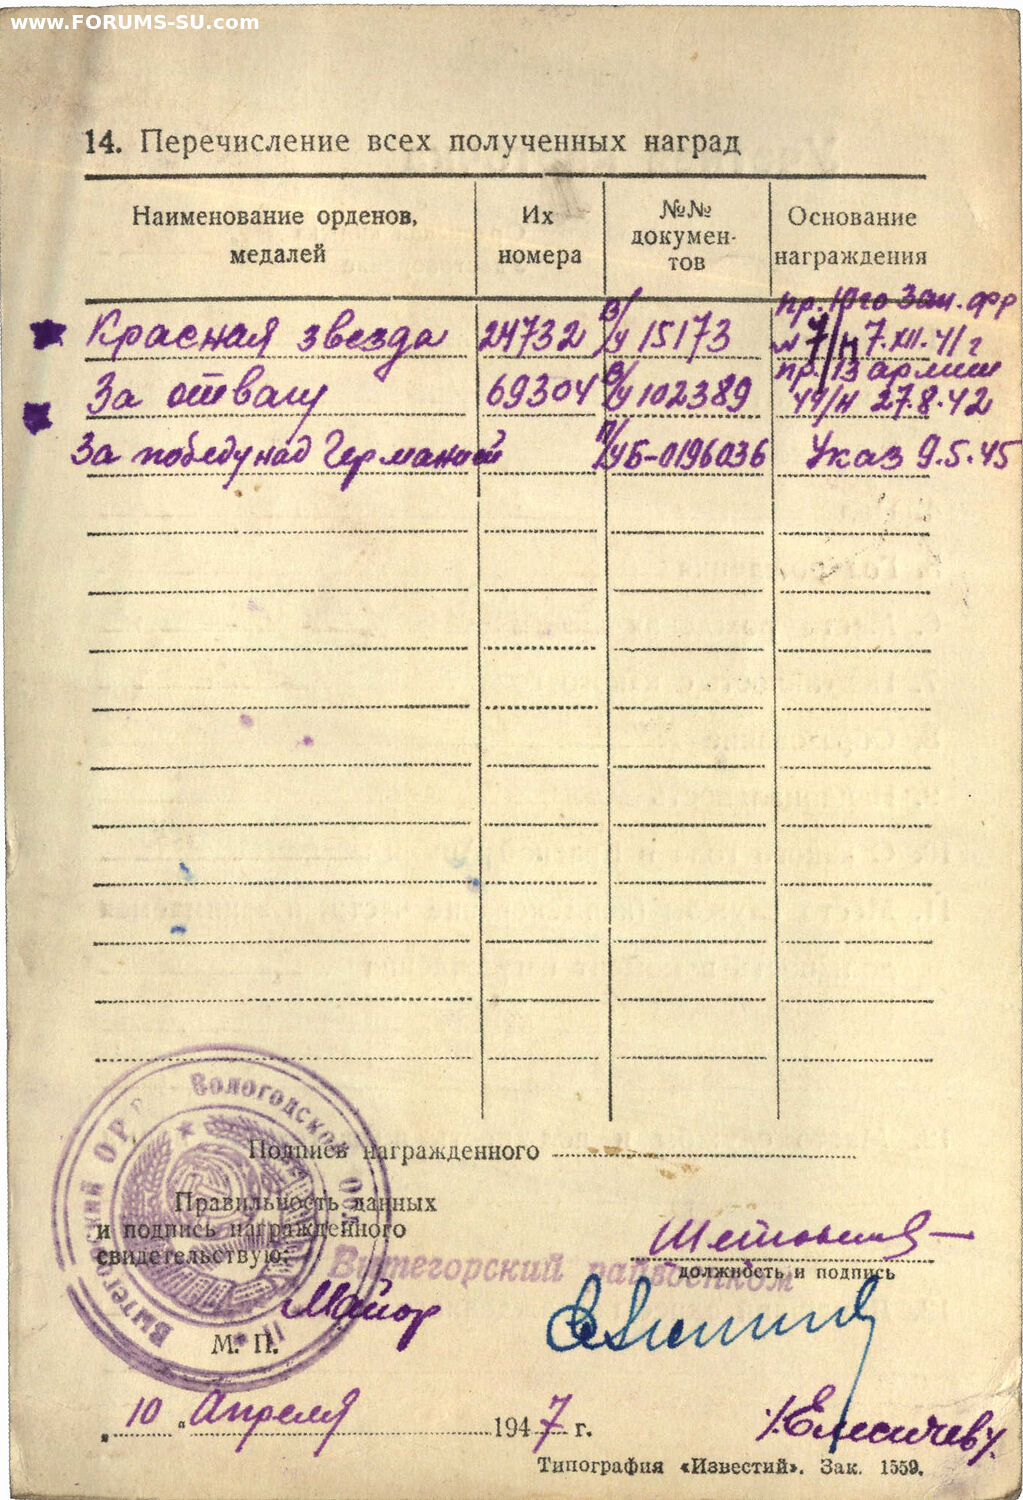 www.FORUMS-SU.com
14. Перечисление всех полученных наград
Наименование орденов, медалей
Их номера
№№ докумен-тов
Основание награждения
Красная звезда 24732 в/у 15173 пр. Юго Зап. фр № 7/н 7.XII.41г
За отвагу 69304 в/у 102389 пр. 13 армии 44/н 27.8.42
За победу над Германией п/у Б-0196036 Указ 9.5.45
Подпись награжденного
Правильность данных
и подпись награжденного
свидетельствую:
Витегорский райвоенком
должность и подпись
Майор
М. П.
Вологодской Обл
„10“ Апреля 1947 г.
Типография «Известий». Зак. 1559.